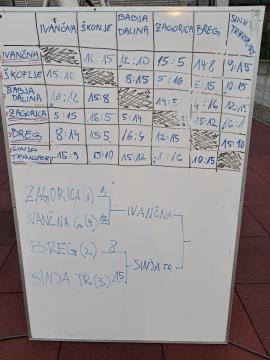 IVANČNA ŠKOFLJE BABJA DALINA ZAGORICA BREG SINJE TRANSPORT
IVANČNA 10:15 12:10 15:5 14:8 9:15
ŠKOFLJE 15:10 8:15 5:16 5:15
BABJA DALINA 10:12 15:8 14:5 4:16 12:15
ZAGORICA 5:15 16:5 5:14 15:12 16:1
BREG 8:14 15:5 16:4 12:15 15:10
SINJE TRANSPORT 15:9 15:12 1:16 10:15
ZAGORICA (1)
IVANČNA
IVANČNA G. (4) 12
BREG (2) 8
SINJA TR.
SINJA TR (3) 15